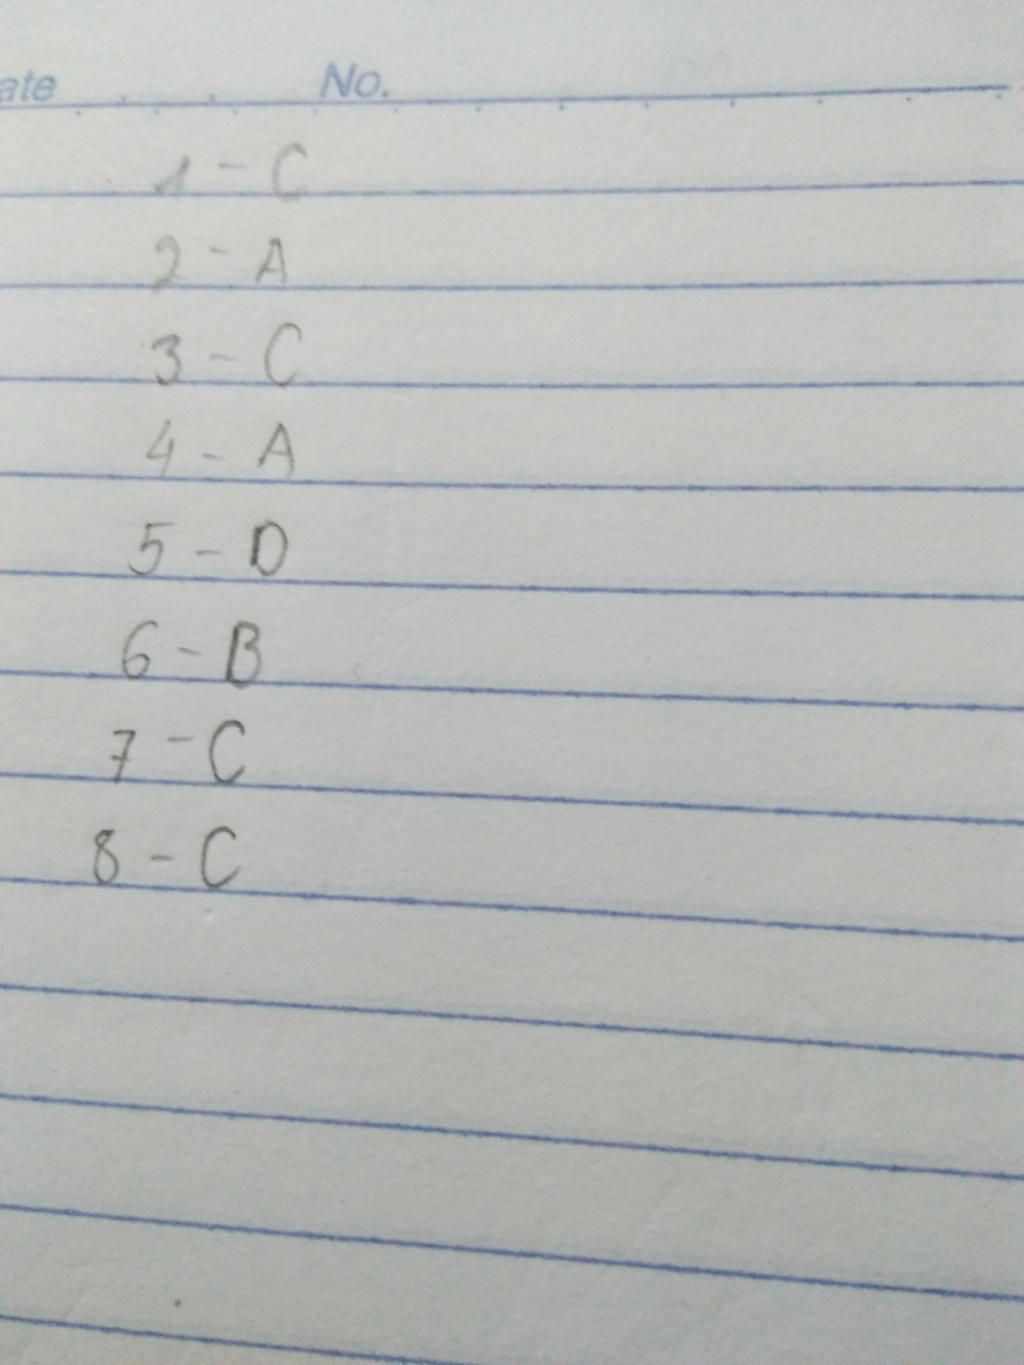 ate No.
1 - C
2 - A
3 - C
4 - A
5 - D
6 - B
7 - C
8 - C